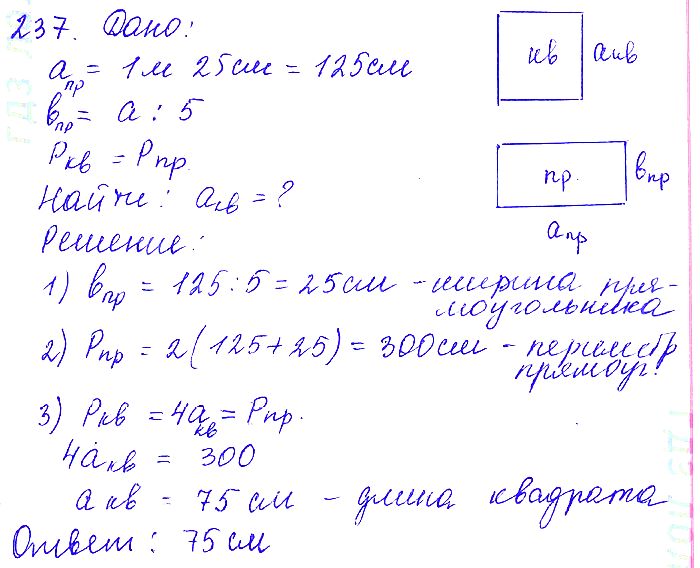 237. Дано:
кв aкв
aпр = 1м 25см = 125см
bпр = a : 5
Pкв = Pпр.
пр. bпр
Найти: aкв = ?
aпр
Решение:
1) bпр = 125 : 5 = 25см - ширина пря-
моугольника
2) Pпр = 2(125+25) = 300см - периметр
прямоуг.
3) Pкв = 4aкв = Pпр.
4aкв = 300
aкв = 75см - длина квадрата
Ответ: 75см